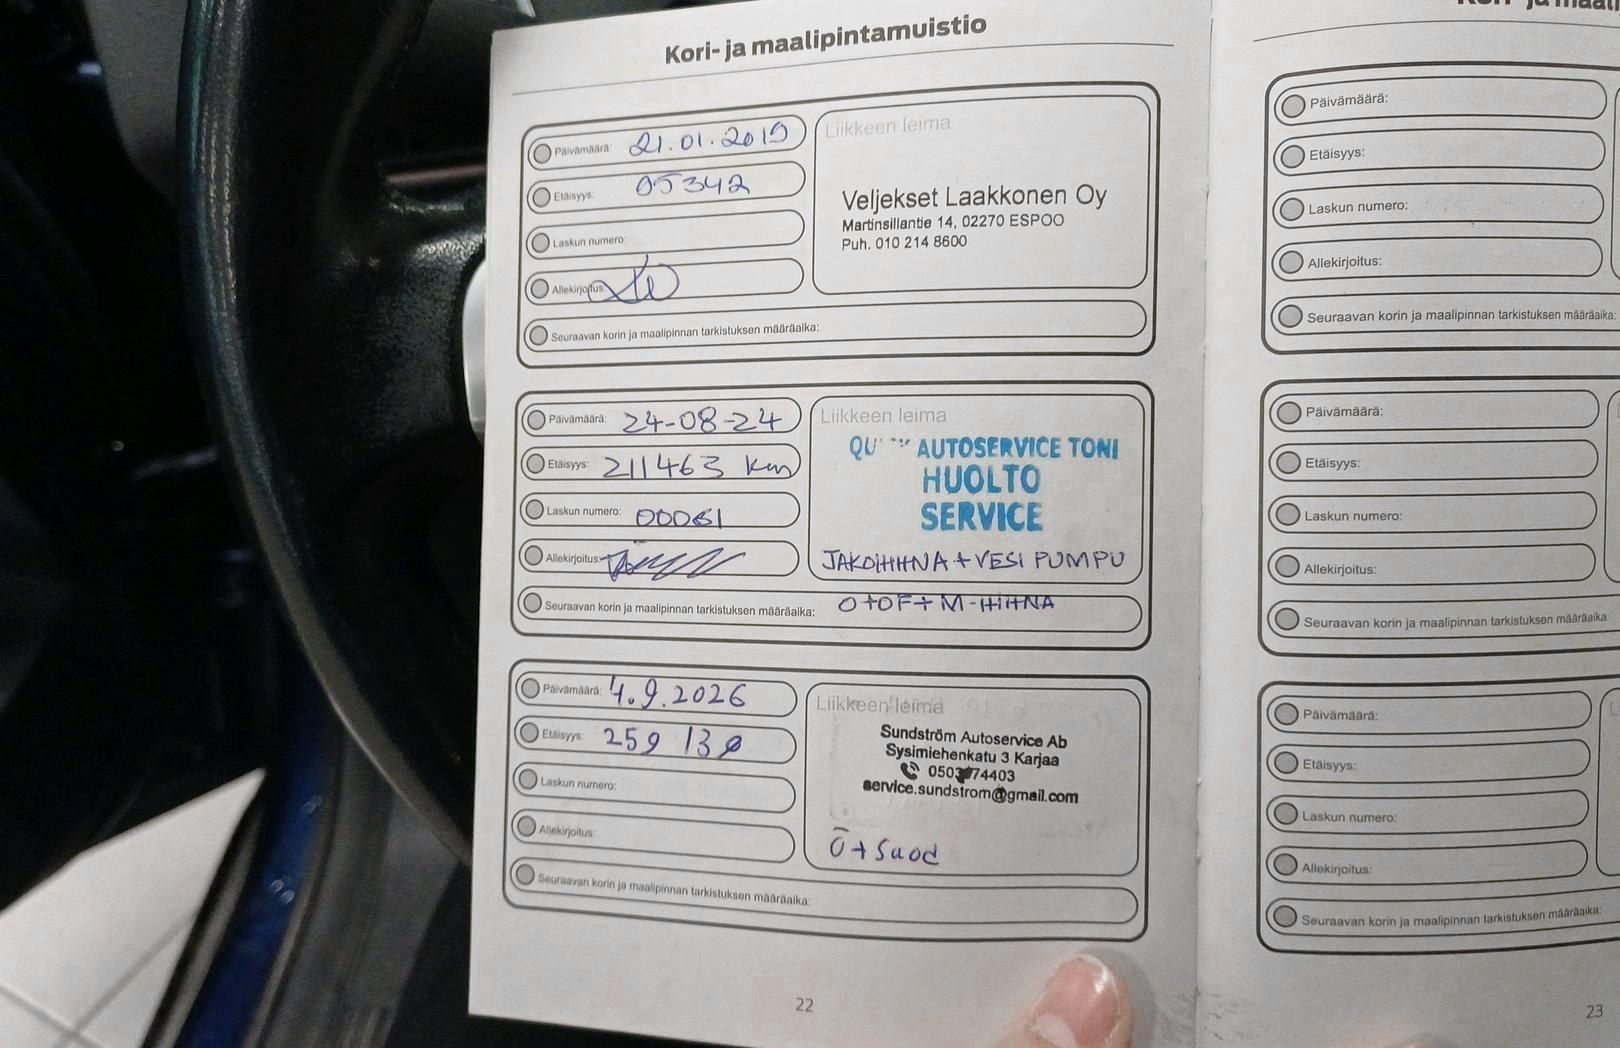 Kori- ja maalipintamuistio
Päivämäärä: 21.01.2019
Etäisyys: 05342
Laskun numero:
Allekirjoitus:
Liikkeen leima
Veljekset Laakkonen Oy
Martinsillantie 14, 02270 ESPOO
Puh. 010 214 8600
Seuraavan korin ja maalipinnan tarkistuksen määräaika:
Päivämäärä: 24-08-24
Etäisyys: 211463 km
Laskun numero: 00061
Allekirjoitus:
Liikkeen leima
AUTOSERVICE TONI
HUOLTO
SERVICE
JAKOHIHNA + VESI PUMPU
Seuraavan korin ja maalipinnan tarkistuksen määräaika: O+OF+M-HIHNA
Päivämäärä: 4.9.2026
Etäisyys: 259 130
Laskun numero:
Allekirjoitus:
Liikkeen leima
Sundström Autoservice Ab
Sysimiehenkatu 3 Karjaa
service.sundstrom@gmail.com
Ö+Suod
Seuraavan korin ja maalipinnan tarkistuksen määräaika:
22
Päivämäärä:
Etäisyys:
Laskun numero:
Allekirjoitus:
Seuraavan korin ja maalipinnan tarkistuksen määräaika:
Päivämäärä:
Etäisyys:
Laskun numero:
Allekirjoitus:
Seuraavan korin ja maalipinnan tarkistuksen määräaika:
Päivämäärä:
Etäisyys:
Laskun numero:
Allekirjoitus:
Seuraavan korin ja maalipinnan tarkistuksen määräaika:
23